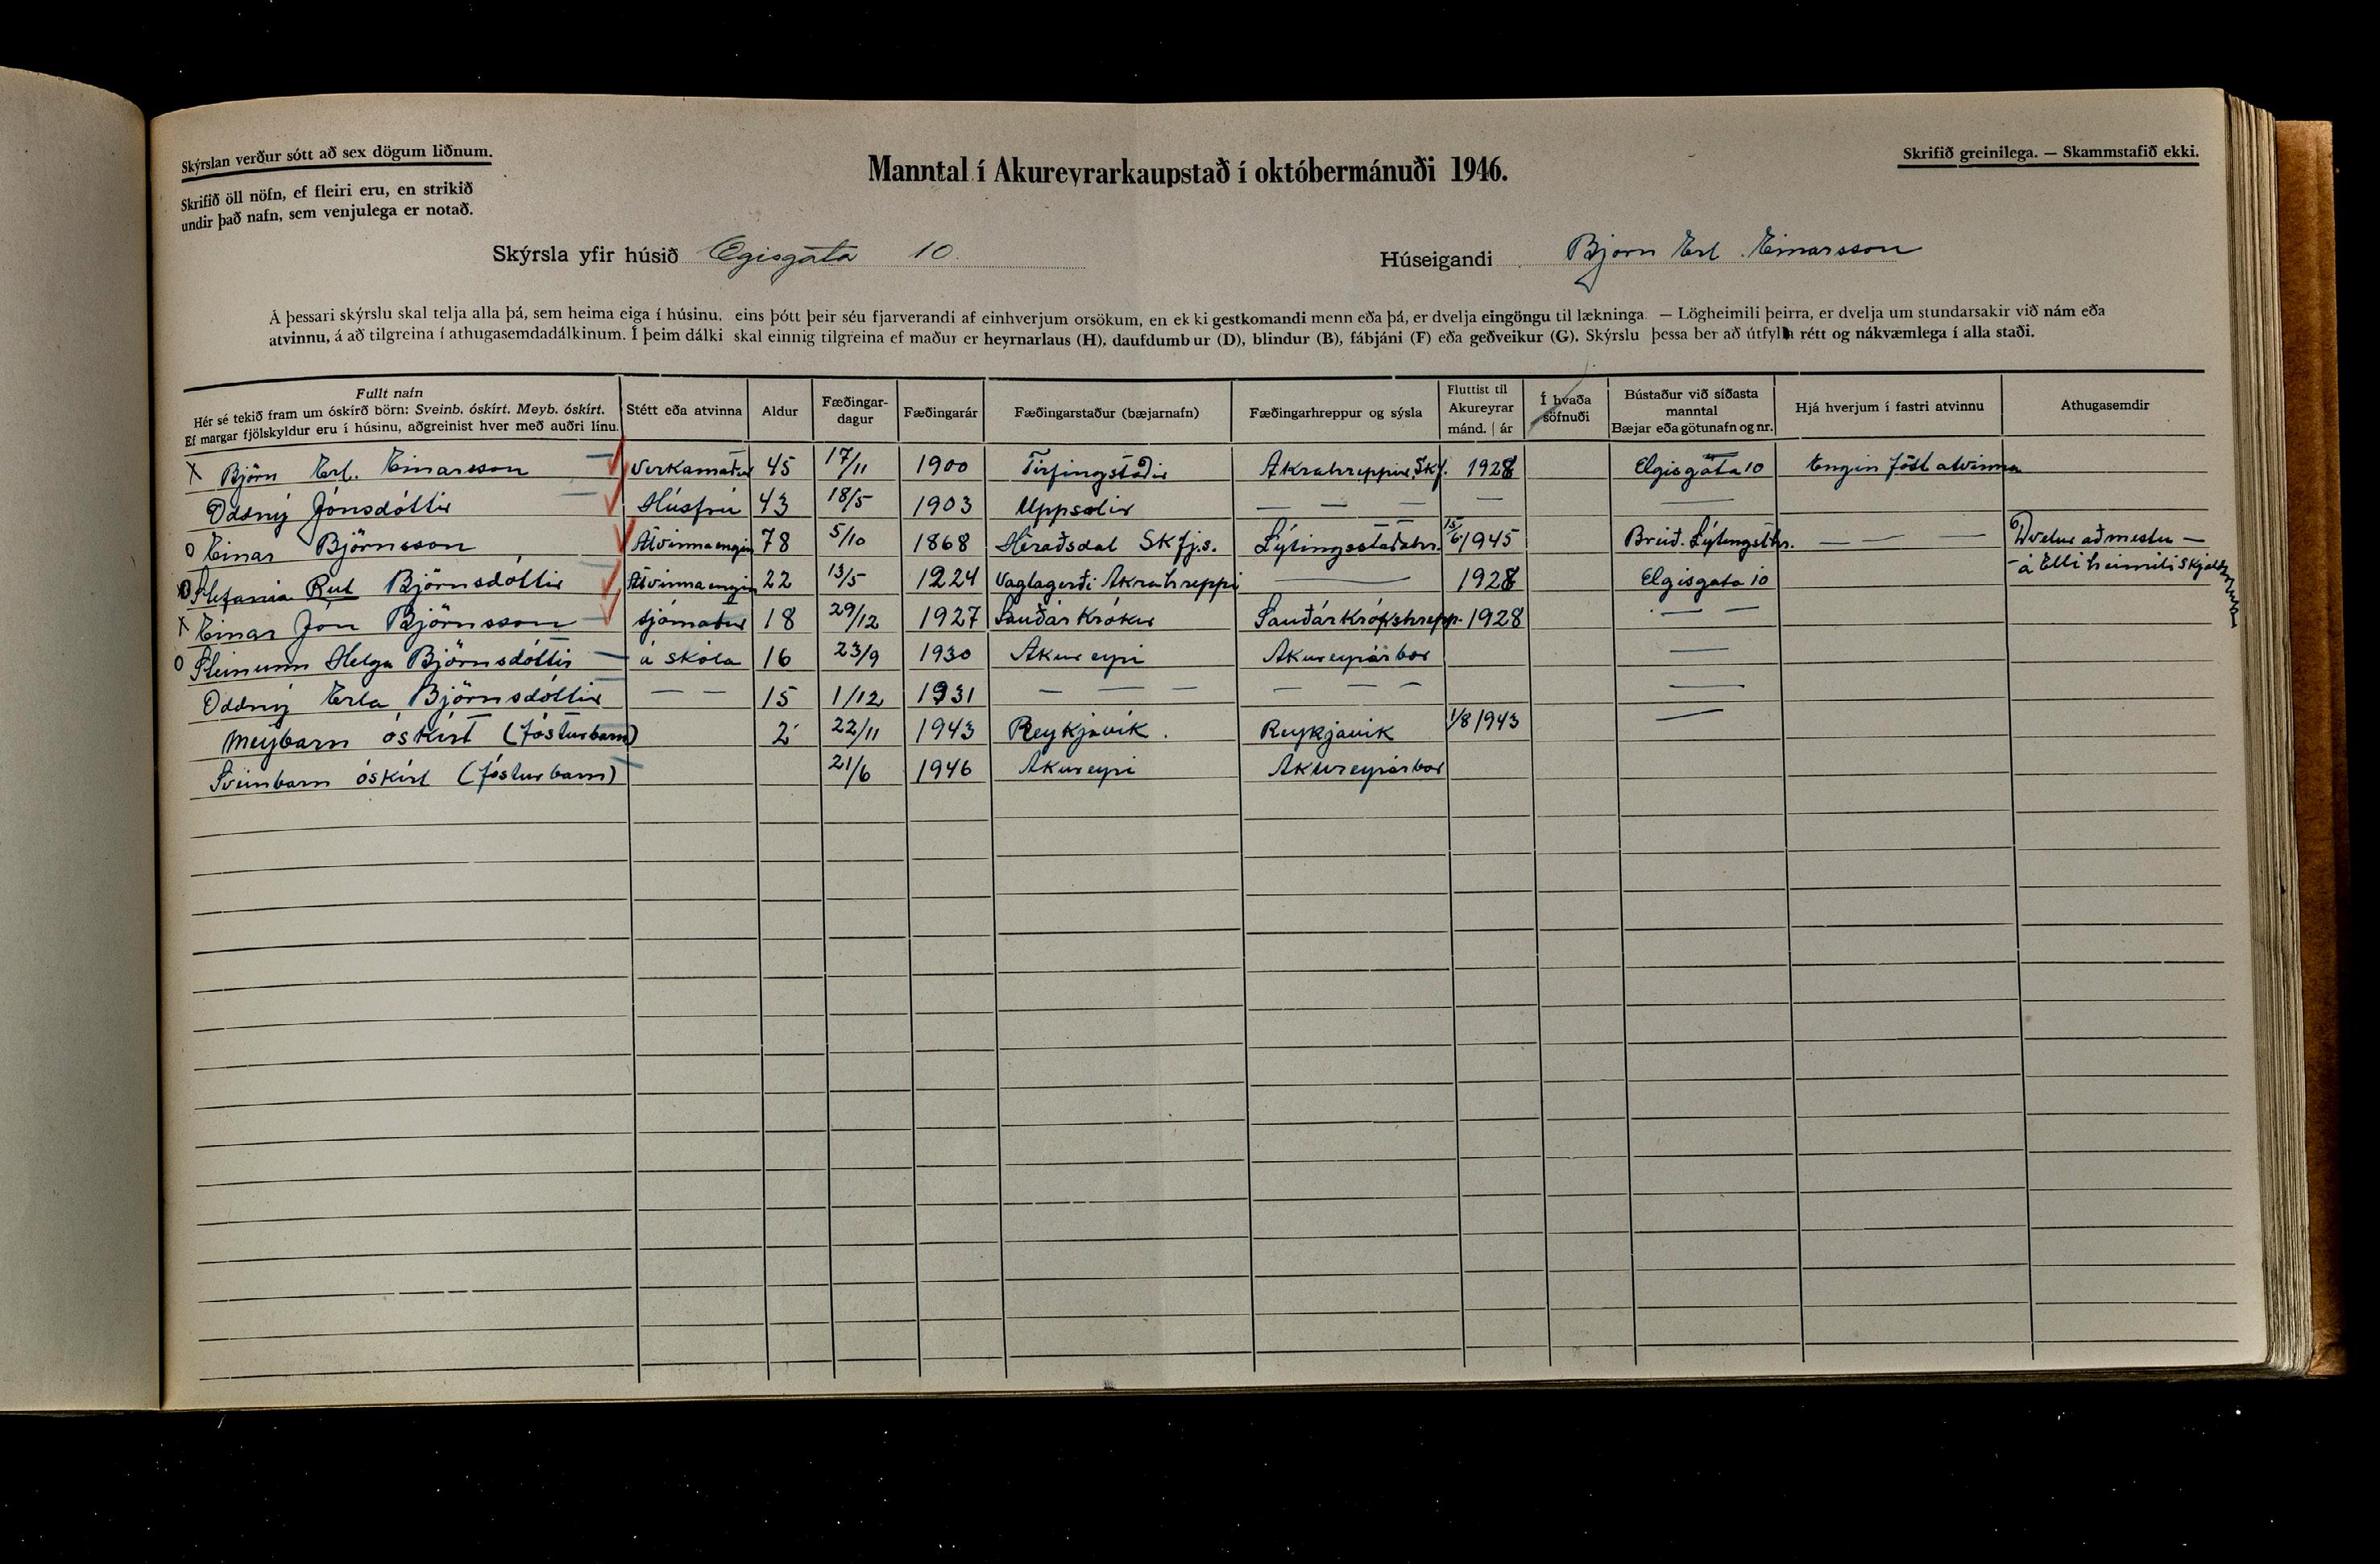 Skýrslan verður sótt að sex dögum liðnum.
Skrifið öll nöfn, ef fleiri eru, en strikið
undir það nafn, sem venjulega er notað.
Manntal í Akureyrarkaupstað í októbermánuði 1946.
Skrifið greinilega. — Skammstafið ekki.
Skýrsla yfir húsið Ægisgata 10
Húseigandi Björn Erl. Einarsson
Á þessari skýrslu skal telja alla þá, sem heima eiga í húsinu, eins þótt þeir séu fjarverandi af einhverjum orsökum, en ekki gestkomandi menn eða þá, er dvelja eingöngu til lækninga. — Lögheimili þeirra, er dvelja um stundarsakir við nám eða
atvinnu, á að tilgreina í athugasemdadálkinum. Í þeim dálki skal einnig tilgreina ef maður er heyrnarlaus (H), daufdumbur (D), blindur (B), fábjáni (F) eða geðveikur (G). Skýrslu þessa ber að útfylla rétt og nákvæmlega í alla staði.
Fullt nafn
Hér sé tekið fram um óskírð börn: Sveinb. óskírt. Meyb. óskírt.
Ef margar fjölskyldur eru í húsinu, aðgreinist hver með auðri línu.
Stétt eða atvinna
Aldur
Fæðingar-
dagur
Fæðingarár
Fæðingarstaður (bæjarnafn)
Fæðingarhreppur og sýsla
Fluttist til
Akureyrar
mánd. | ár
Í hvaða
söfnuði
Bústaður við síðasta
manntal
Bæjar eða götunafn og nr.
Hjá hverjum í fastri atvinnu
Athugasemdir
x Björn Erl. Einarsson — Verkamaður 45 17/11 1900 Tirfingstaðir Akrahreppur, Skf. 1928 Ægisgata 10 Engin föst atvinna
Oddný Jónsdóttir — Húsfrú 43 18/5 1903 Uppsalir — — — — —
o Einar Björnsson — Atvinna engin 78 5/10 1868 Héraðsdal Skfj.s. Lýtingsstaðahr. 15/6 1945 Breið. Lýtingst.hr. — — — Dvelur að mestu —
o Stefania Rut Björnsdóttir Atvinna engin 22 13/5 1924 Vaglagerði Akrahreppi — 1928 Ægisgata 10 - á Elliheimili Skjaldarvík
x Einar Jón Björnsson — sjómaður 18 29/12 1927 Sauðárkrókur Sauðárkrókshrepp. 1928 — —
o Steinunn Helga Björnsdóttir — á skóla 16 23/9 1930 Akureyri Akureyrarbær —
Oddný Erla Björnsdóttir — — 15 1/12 1931 — — — — — — —
Meybarn óskírt (fósturbarn) 2 22/11 1943 Reykjavík. Reykjavík 1/8 1943 —
Sveinbarn óskírt (fósturbarn) 21/6 1946 Akureyri Akureyrarbær